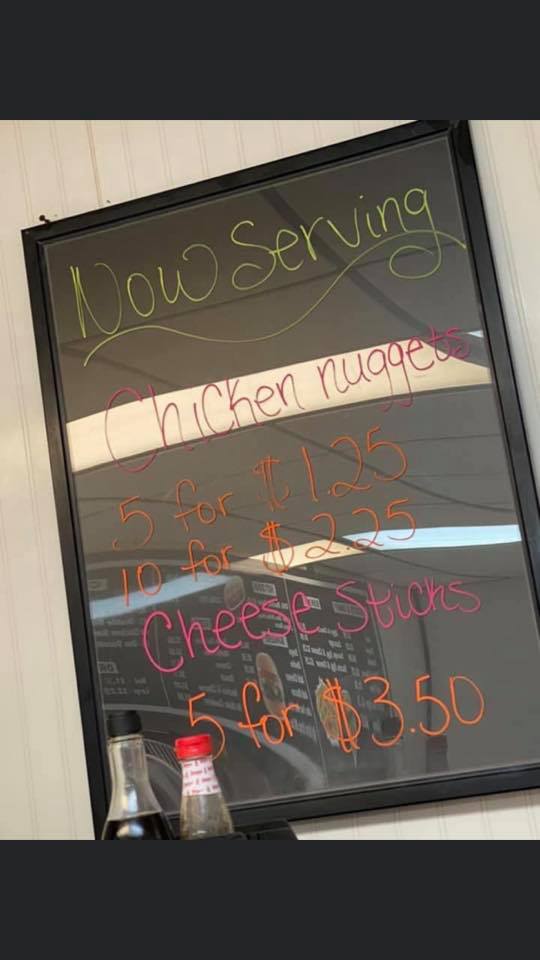 Now Serving
Chicken nuggets
5 for $1.25
10 for $2.25
Cheese Sticks
5 for $3.50